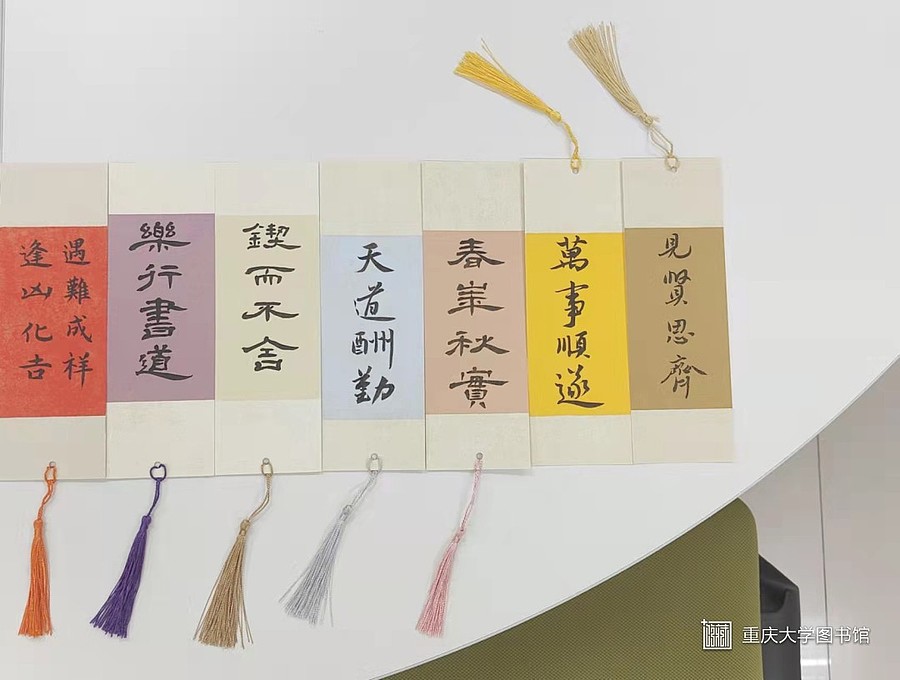 遇難成祥
逢凶化吉
樂行書道
鍥而不舍
天道酬勤
春華秋實
萬事順遂
見賢思齊
重庆大学图书馆